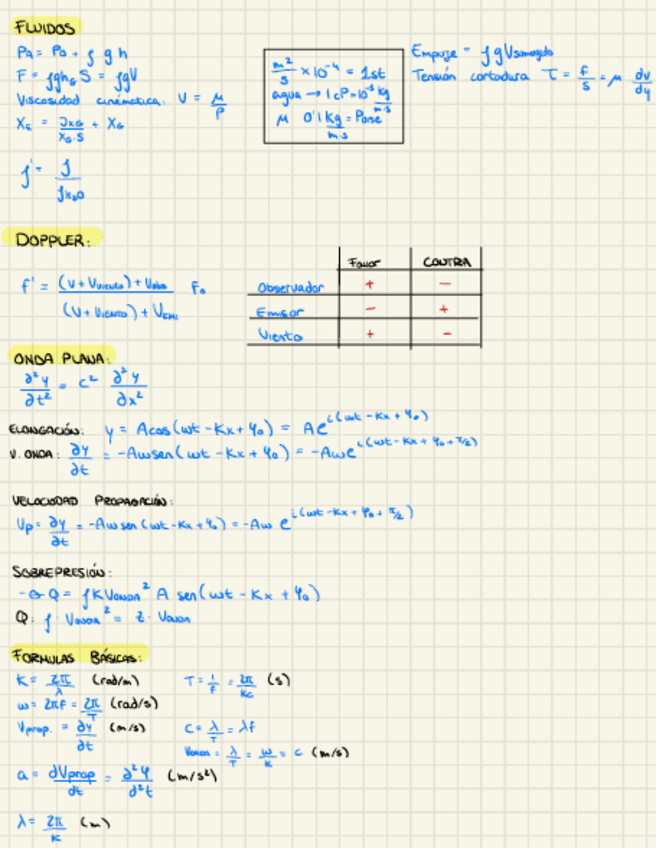 FLUIDOS
Pa = Po + ρ g h
F = ρghG S = ρgV
Viscosidad cinemática: V = μ/ρ
XE = JXG/XG·S + XG
ρ' = ρ/ρH2O
m²/s × 10⁻⁴ = 1st
agua → 1cP = 10⁻³ kg/m·s
μ 0'1 kg/m·s =
Empuje = ρ g Vsumergido
Tensión cortadura τ = F/S = μ dv/dy
DOPPLER:
f' = (V + Vviento) + Vobs / (V + Viento) + VEMI Fo
Favor CONTRA
Observador + -
Emisor - +
Viento + -
ONDA PLANA:
∂²y/∂t² = c² ∂²y/∂x²
ELONGACIÓN: y = A cos(ωt - Kx + φo) = A e^i(ωt - Kx + φo)
V. ONDA: ∂y/∂t = -Aωsen(ωt - Kx + φo) = -Aωe^i(ωt - Kx + φo + π/2)
VELOCIDAD PROPAGACIÓN:
Vp = ∂y/∂t = -Aω sen(ωt - Kx + φo) = -Aω e^i(ωt - Kx + φo + π/2)
SOBREPRESIÓN:
Q = ρ K VONDA² A sen(ωt - Kx + φo)
Q: ρ · VONDA² = Z · VONDA
FORMULAS BÁSICAS:
K = 2π/λ (rad/m)
T = 1/f = 2π/Kc (s)
ω = 2πF = 2π/T (rad/s)
Vprop. = ∂y/∂t (m/s)
C = λ/T = λf
VONDA = λ/T = ω/K = c (m/s)
a = dVprop/dt = ∂²φ/∂²t (m/s²)
λ = 2π/K (m)